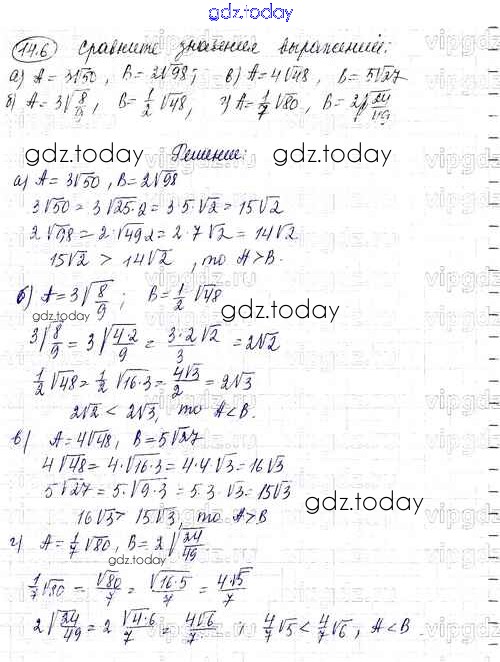 gdz.today
14.6 Сравните значения выражений:
а) A = 3√50, B = 2√98; в) A = 4√48, B = 5√27
б) A = 3√8/9, B = 1/2 √48, г) A = 1/7 √80, B = 2√24/49
gdz.today Решение: gdz.today
а) A = 3√50, B = 2√98
3√50 = 3√25·2 = 3·5·√2 = 15√2
2√98 = 2·√49·2 = 2·7√2 = 14√2
15√2 > 14√2, то A > B.
б) A = 3√8/9; B = 1/2 √48
gdz.today gdz.today
3√8/9 = 3√4·2/9 = 3·2√2/3 = 2√2
1/2 √48 = 1/2 √16·3 = 4√3/2 = 2√3
2√2 < 2√3, то A < B.
в) A = 4√48, B = 5√27
4√48 = 4·√16·3 = 4·4·√3 = 16√3
gdz.today gdz.today
5√27 = 5·√9·3 = 5·3·√3 = 15√3
16√3 > 15√3, то A > B
г) A = 1/7 √80, B = 2√24/49
gdz.today
1/7 √80 = √80/7 = √16·5/7 = 4√5/7
2√24/49 = 2√4·6/7 = 4√6/7; 4/7 √5 < 4/7 √6, A < B
gdz.today gdz.today